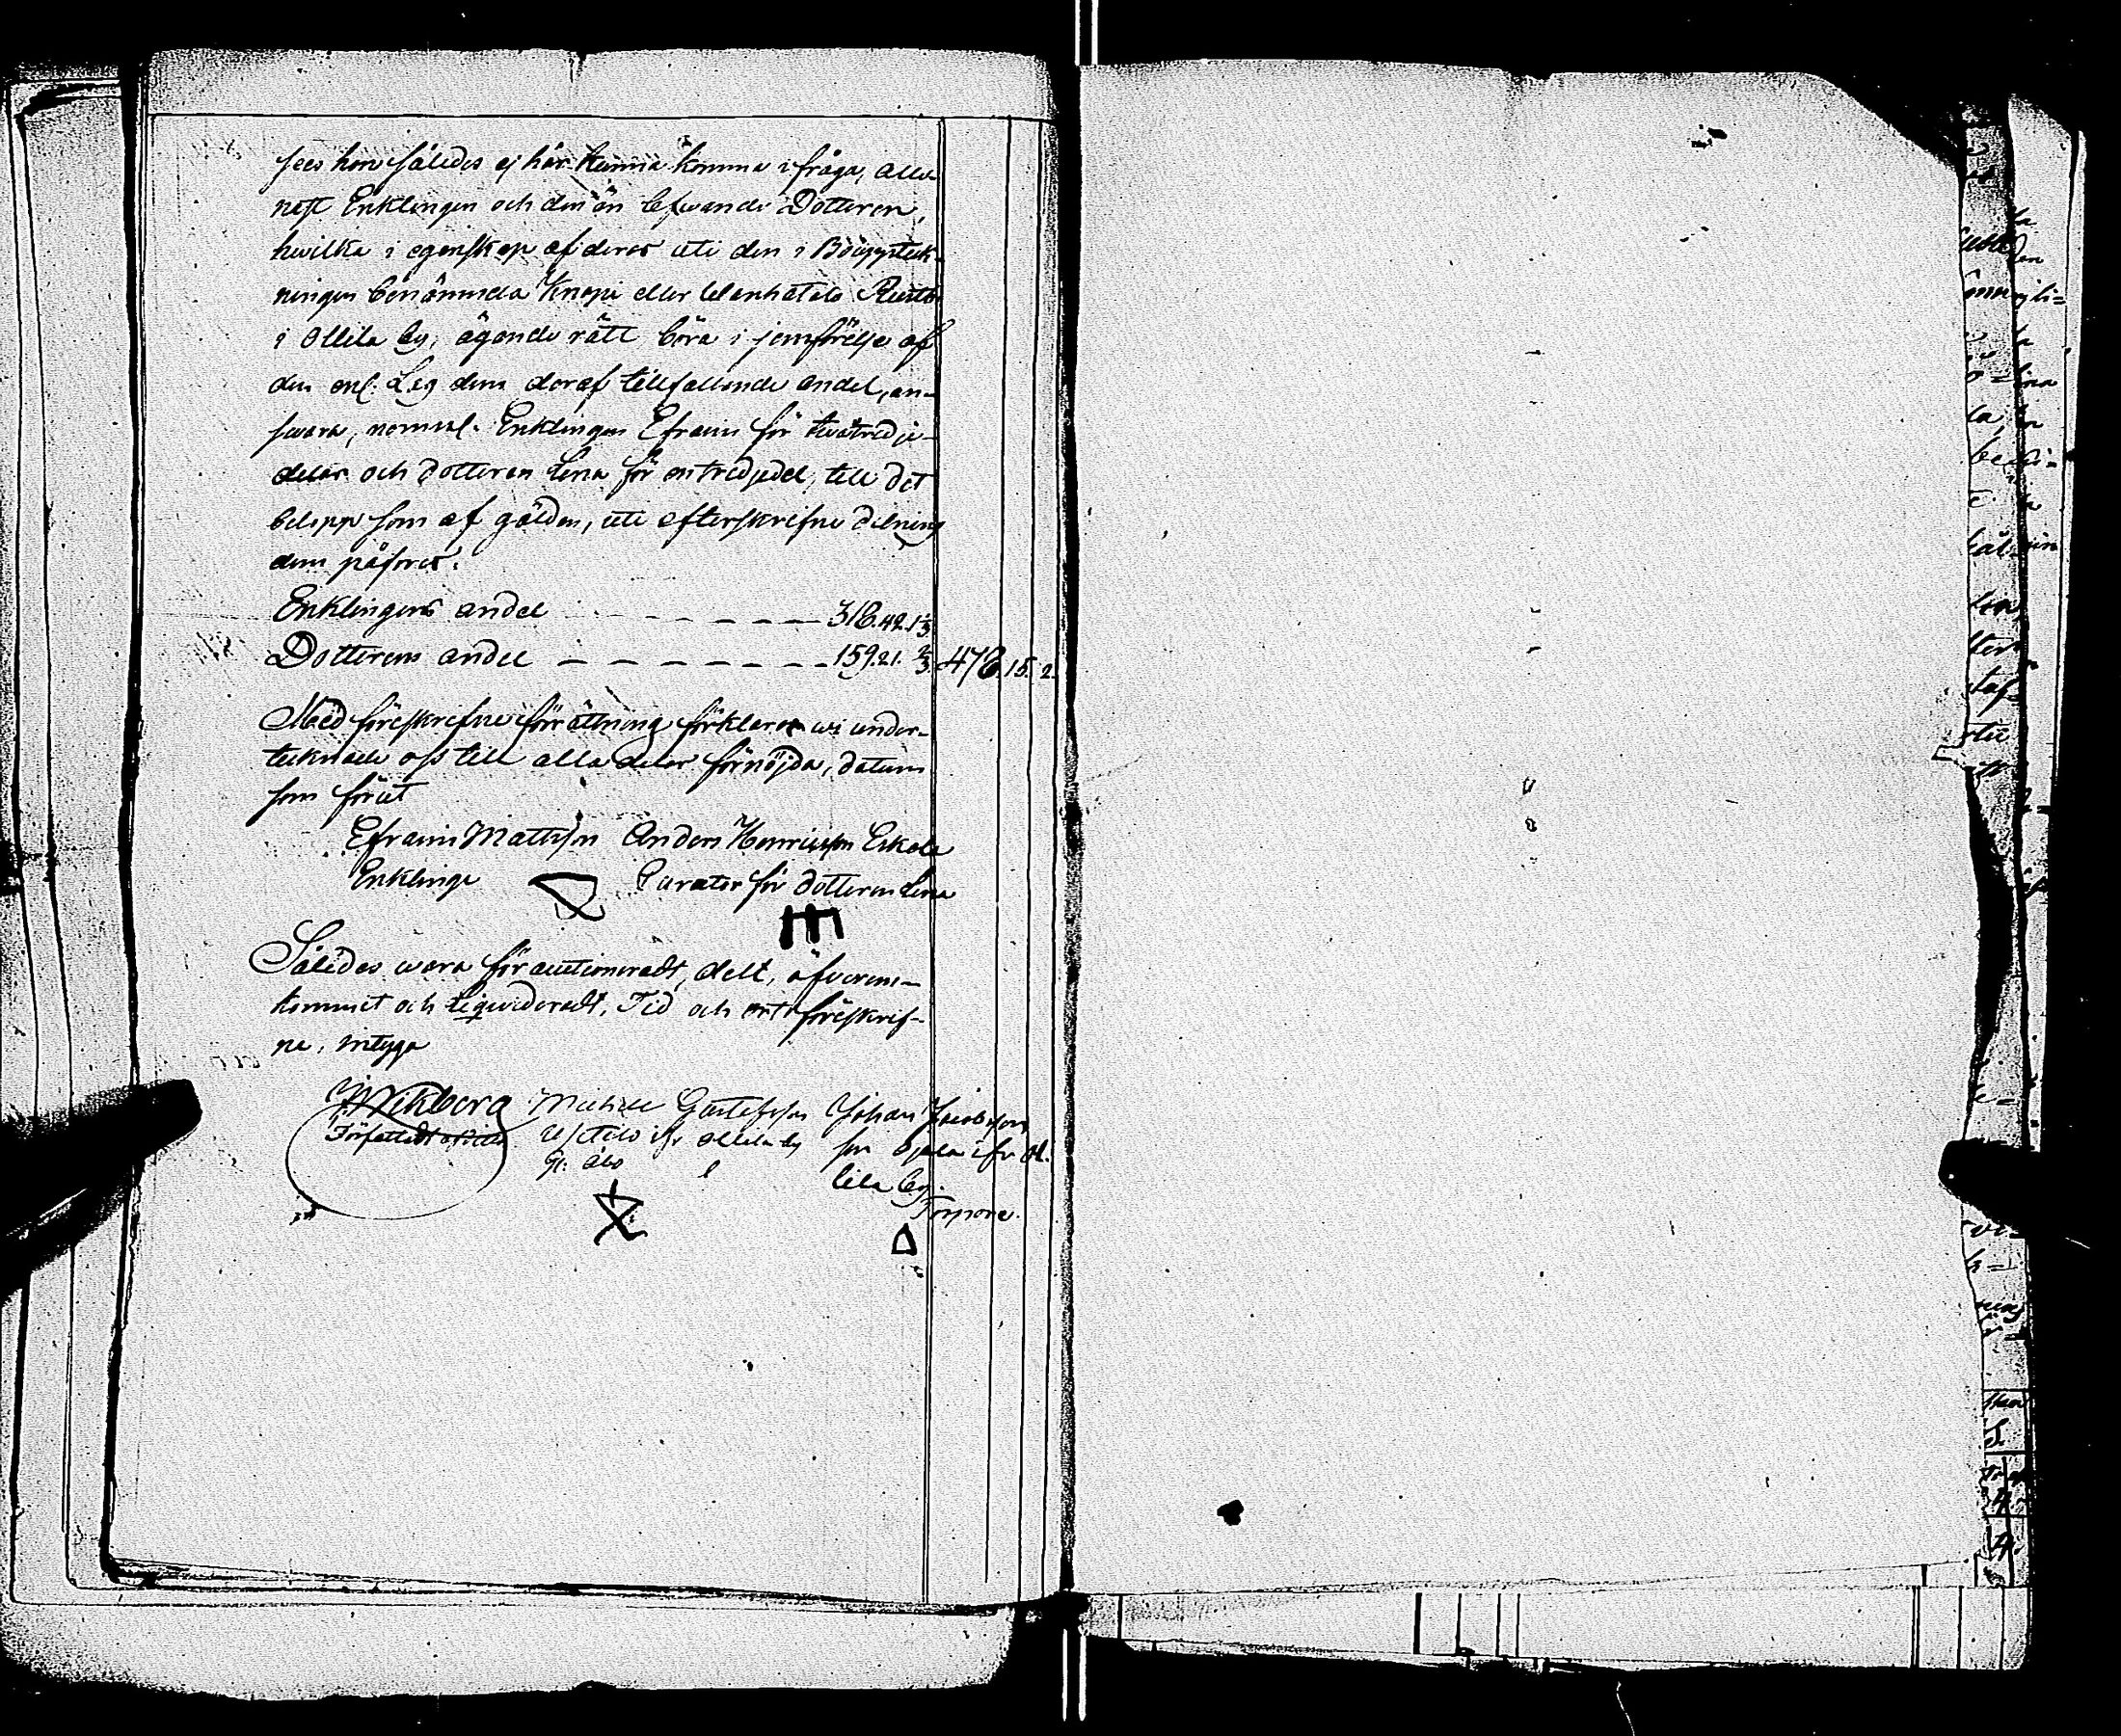 sees hon således ej här kunna komma i fråga, alle-
nast Enklingen och den än lefwande Dotteren,
hwilka i egenskap af deras uti den i Bouppteck-
ningen benämnda Knopi eller Wanhatalo Rustb
i Ollila by, ägande rätt böra i jemförelse af
den enl. Lag dem deraf tillfallande andel, an-
swara, nemnl. Enklingen Efraim för twåtredje-
delar och dotteren Lena för entredjedel, till det
belopp som af gälden, uti efterskrifne delning
dem påföres.
Enklingens andel 318.42.1⅓
Dotterens andel 159.21. ⅔ 478.15.2.
Med föreskrefne förrättning förklarar wi under-
tecknade oss till alla delar förnöjda, datum
som förut
Efraim Mattsson Anders Henricsson Eskola
Enklinge Curator för dotteren Lena
Således wara förauctioneradt, delt, öfverens-
kommet och Liqvideradt, Tid och ort föreskrif-
ne, intyga
Wikberg Michell Gustafsson Johan Jacobsson
Författadt ifr Ollila by fr Ojala ifr Ol-
lila by.